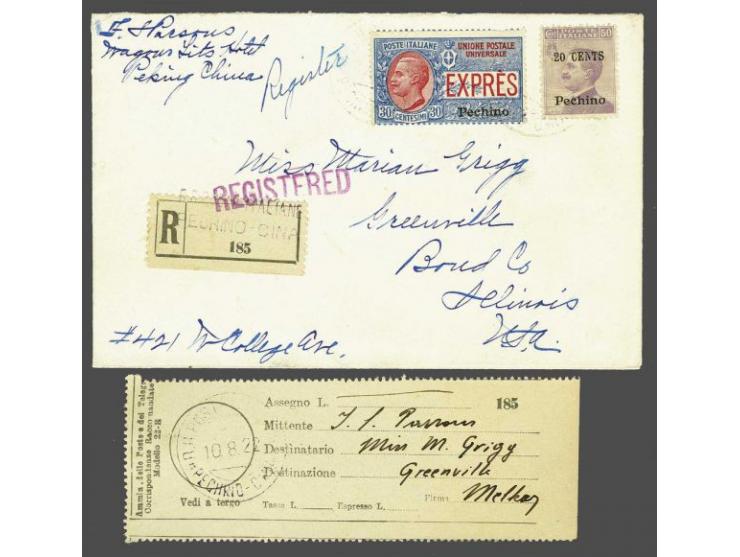 Parsons
Wagons Lits Hotel
Peking China
Register
POSTE ITALIANE
UNIONE POSTALE
UNIVERSALE
EXPRÈS
Pechino
30 CENTESIMI 30
POSTE
ITALIANE 50
20 CENTS
Pechino
Miss Marian Grigg
Greenville
Bond Co
Illinois
USA.
REGISTERED
PECHINO-CINA
R
185
#421 W College Ave.
Ammin. delle Poste e dei Telegr.
Corrispondenze Raccomandate
Modello 22-R
10.8.22
PECHINO-C
Vedi a tergo
Assegno L. 185
Mittente Parsons
Destinatario Miss M. Grigg
Destinazione Greenville
Firma
Tassa L. Espresso L.